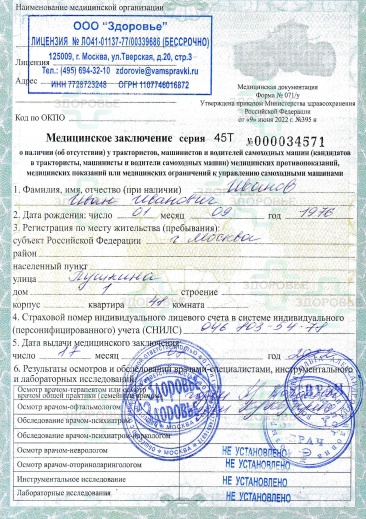 Наименование медицинской организации
ООО "Здоровье"
ЛИЦЕНЗИЯ № ЛО41-01137-77/00339686 (БЕССРОЧНО)
125009, г. Москва, ул.Тверская, д.20, стр.3
Тел.: (495) 694-32-10 zdorovie@vamspravki.ru
ИНН 7728723248 ОГРН 1107746016872
Лицензия
Адрес
Код по ОКПО
Медицинская документация
Форма № 071/у
Утверждена приказом Министерства здравоохранения
Российской Федерации
от «9» июня 2022 г. №395 н
Медицинское заключение серия 45Т №000034571
о наличии (об отсутствии) у трактористов, машинистов и водителей самоходных машин (кандидатов
в трактористы, машинисты и водители самоходных машин) медицинских противопоказаний,
медицинских показаний или медицинских ограничений к управлению самоходными машинами
1. Фамилия, имя, отчество (при наличии) Иванов
Иван Иванович
2. Дата рождения: число 01 месяц 09 год 1976
3. Регистрация по месту жительства (пребывания):
субъект Российской Федерации г Москва
район
населенный пункт
улица Пушкина
дом 1 строение
корпус квартира 41 комната
4. Страховой номер индивидуального лицевого счета в системе индивидуального
(персонифицированного) учета (СНИЛС) 046 103-54-78
5. Дата выдачи медицинского заключения:
число 17 месяц год
6. Результаты осмотров и обследований врачами-специалистами, инструментального
и лабораторных исследований
Осмотр врачом-терапевтом или
врачом общей практики (семейным врачом)
Осмотр врачом-офтальмологом
Обследование врачом-психиатром
Обследование врачом-психиатром-наркологом
Осмотр врачом-неврологом НЕ УСТАНОВЛЕНО
Осмотр врачом-оториноларингологом НЕ УСТАНОВЛЕНО
Инструментальное исследование НЕ УСТАНОВЛЕНО
Лабораторные исследования НЕ УСТАНОВЛЕНО
ЗДОРОВЬЕ
ЗДОРОВЬЕ
ВРАЧ
ВРАЧ